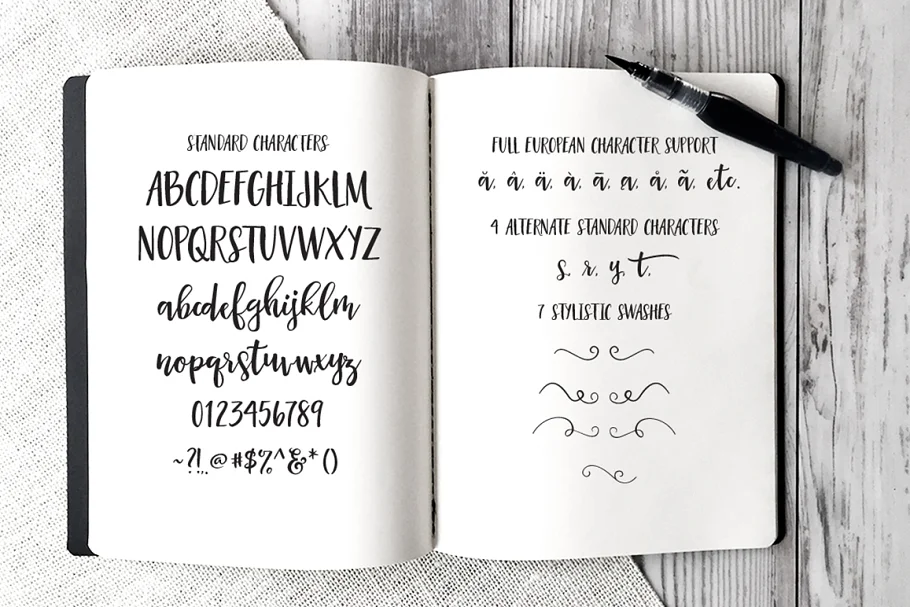 STANDARD CHARACTERS
ABCDEFGHIJKLM
NOPQRSTUVWXYZ
abcdefghijklm
nopqrstuvwxyz
0123456789
~?!..@#$%^&*()
FULL EUROPEAN CHARACTER SUPPORT
ă. â. ä. à. ā. ą. å. ã. etc.
4 ALTERNATE STANDARD CHARACTERS
s. r. y. t.
7 STYLISTIC SWASHES